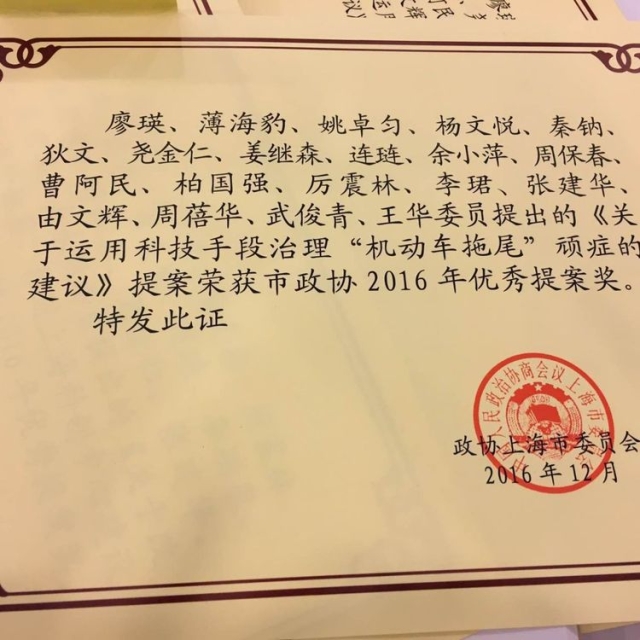 廖瑛、薄海豹、姚卓匀、杨文悦、秦钠、
狄文、尧金仁、姜继森、连琏、余小萍、周保春、
曹阿民、柏国强、厉震林、李珺、张建华、
由文辉、周蓓华、武俊青、王华委员提出的《关
于运用科技手段治理“机动车拖尾”顽症的
建议》提案荣获市政协2016年优秀提案奖。
特发此证
政协上海市委员会
2016年12月